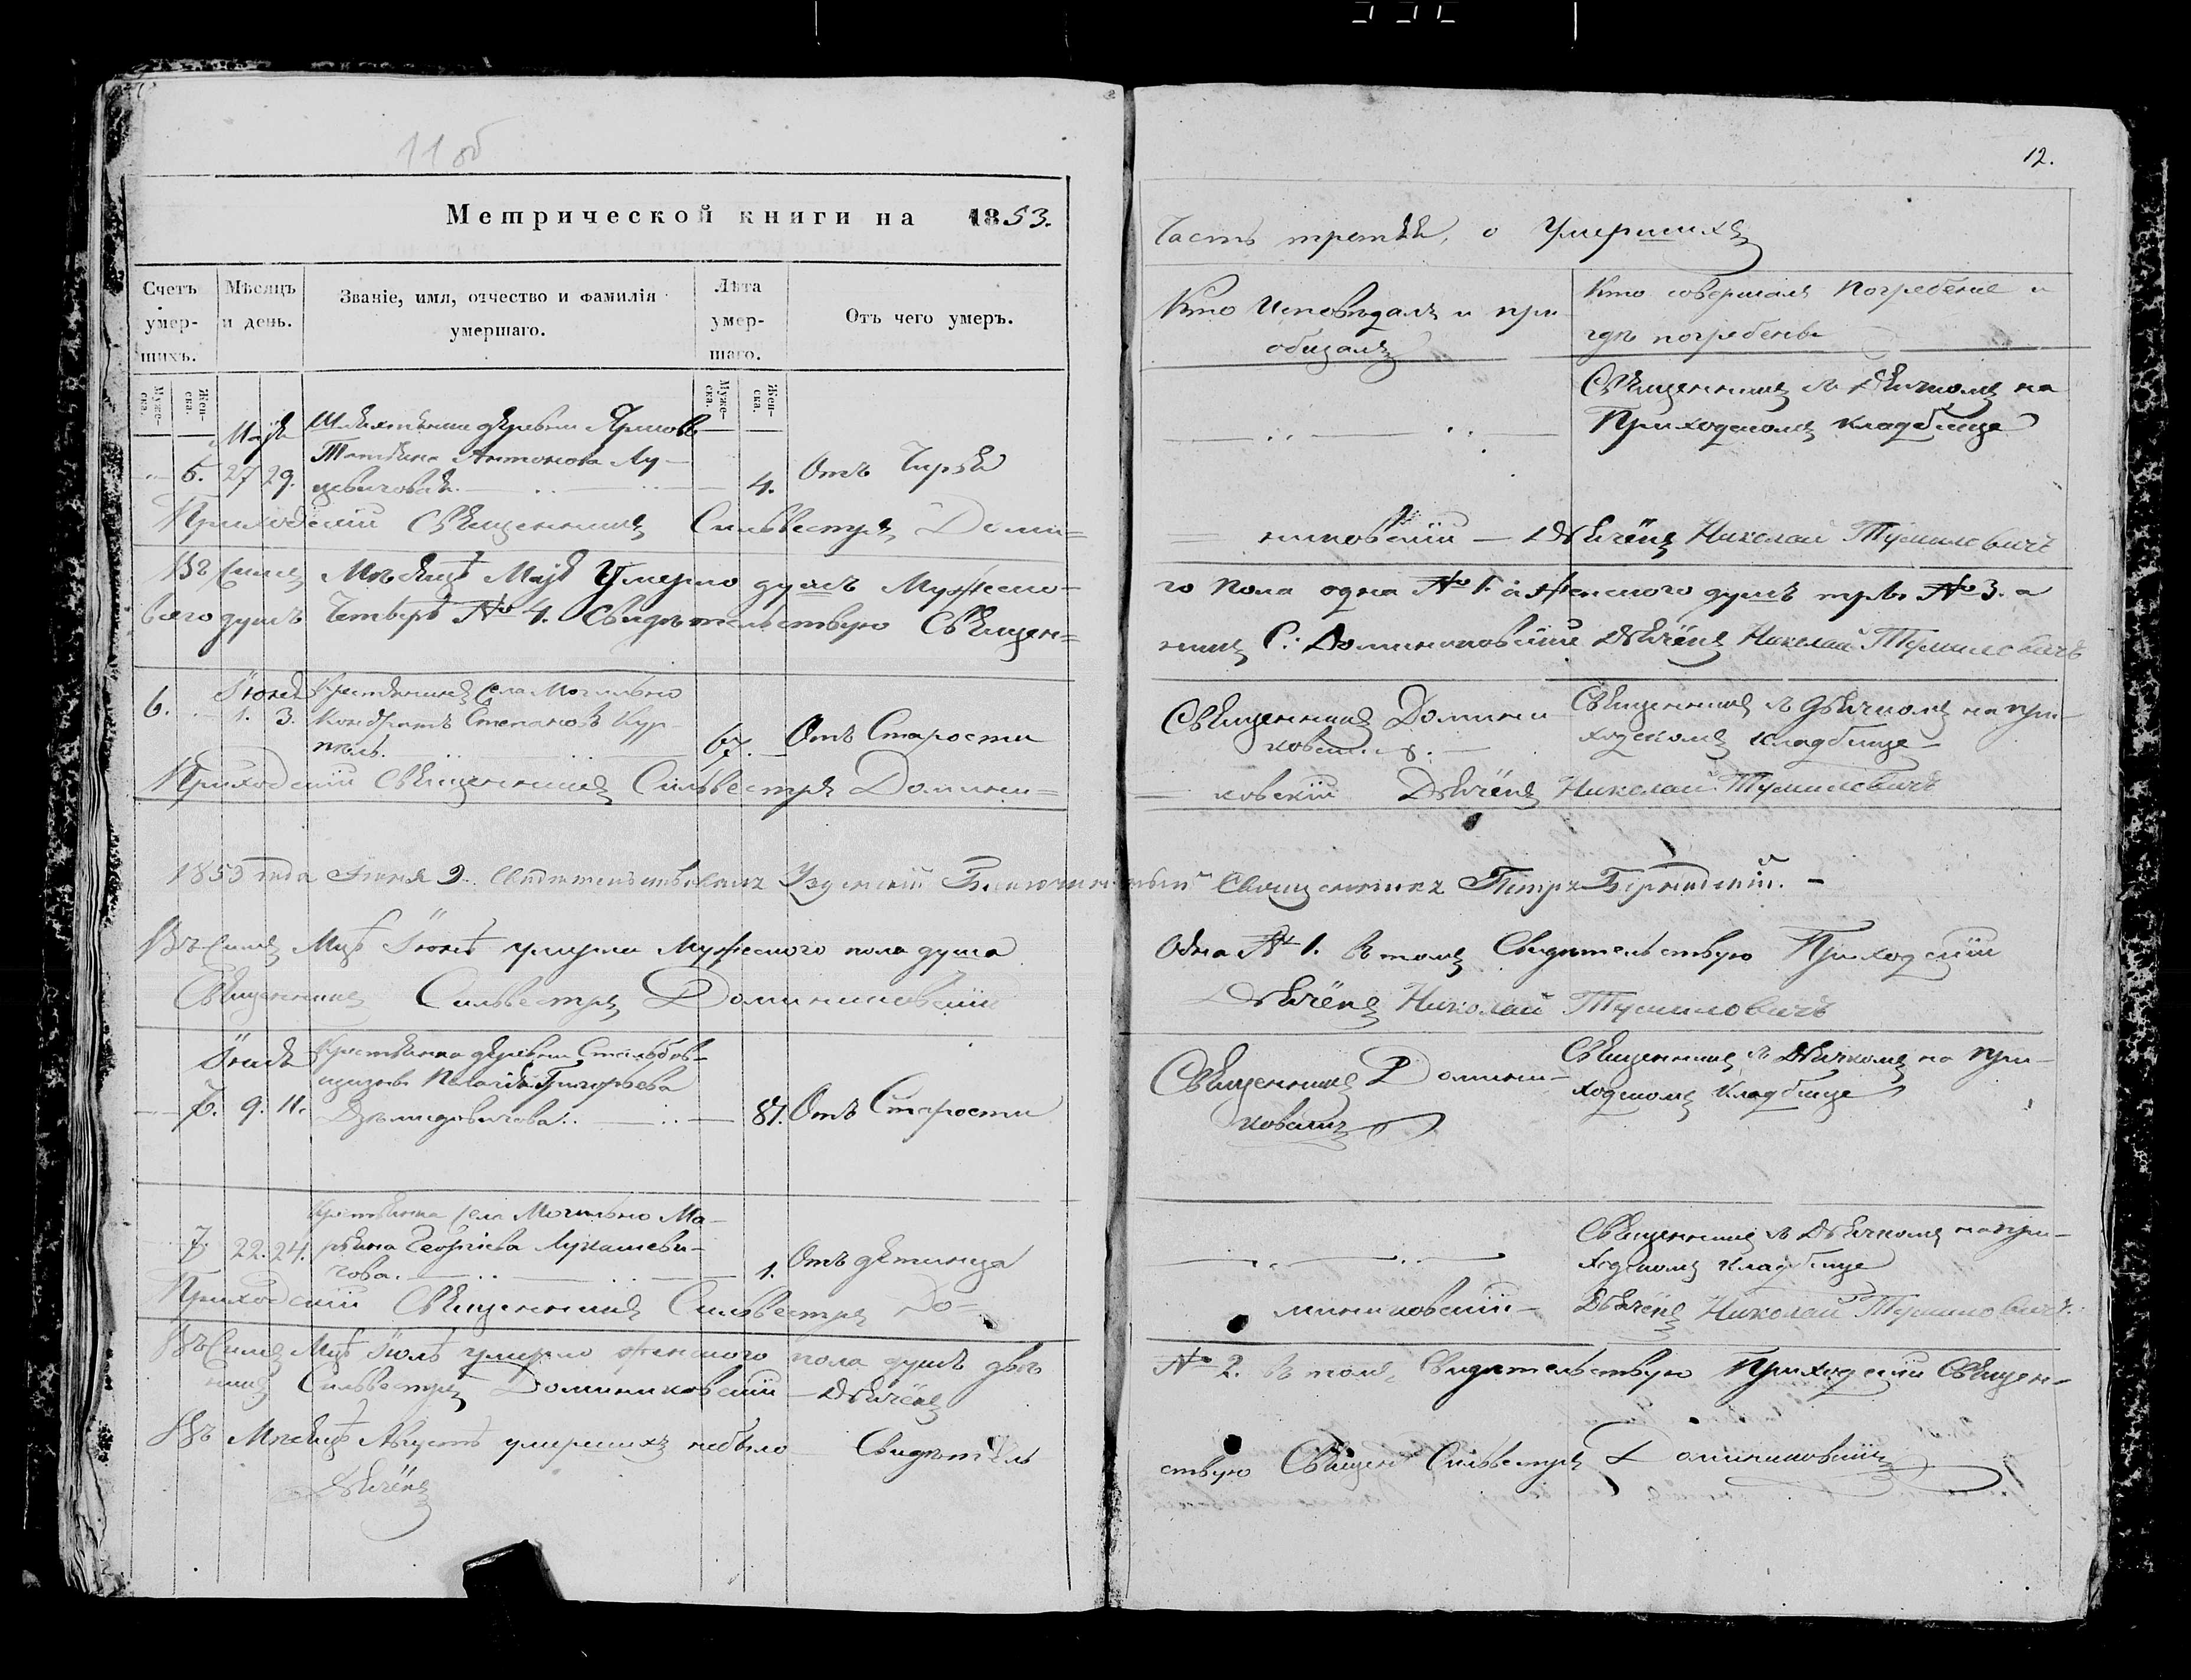 11 об
Метрической книги на 1853.
Счетъ умер-шихъ.
Мѣсяцъ и день.
Званіе, имя, отчество и фамилія умершаго.
Лѣта умер-шаго.
Отъ чего умеръ.
Муже-ска.
Жен-ска.
Муже-ска.
Жен-ска.
Маія
деревни
5. 27 29. Татіяна Антонова Лу-
цевичовая. 4. Отъ
Приходскій Священникъ Сильвестръ Доми=
Въ Семъ Мѣсяцѣ Маіѣ Умерло душъ Мужеско-
всего душъ Четверѣ № 4. Свидѣтельствую Священ=
Іюня Крестьянинъ села Могильно
6. 1. 3. Кондратъ Степановъ Кур-
67. Отъ Старости
Приходскій Священникъ Сильвестръ Домини=
1853 года Іюня 9. Свидетельствовалъ Узденскій Благочинный Священникъ Петръ
Въ Семъ Мцѣ Іюнѣ умерши Мужеского пола душа
Священникъ Сильвестръ Доминиковскій
Іюля Крестьянка деревни
Пелагія Григорьева
6. 9. 11. 81. Отъ Старости
Крестьянка села Могильно Ма-
7. 22. 24. рьяна Георгіева Лукашеви-
чова. 1. Отъ детинца
Приходскій Священникъ Сильвестръ До=
Въ Семъ Мцѣ Іюлѣ умерло женского пола душъ двѣ
никъ Сильвестръ Доминиковскій Дьячёкъ
Въ Мѣсяцѣ Августѣ умершихъ небыло Свидѣтель
Дьячёкъ
12.
Часть третья, о Умершихъ
Кто Исповѣдалъ и при-
общалъ
Кто совершалъ Погребеніе и
гдѣ погребены
Священникъ съ Дьячкомъ на
Приходскомъ кладбище
никовскій — Дьячёкъ Николай Тумиловичъ
го пола одна № 1. а женского душъ три № 3. а
никъ С. Доминиковскій Дьячёкъ Николай Тумиловичъ
Священникъ Домини-
Священникъ съ дьячкомъ на при-
ходскомъ кладбище
ковскій Дьячёкъ Николай Тумиловичъ
Одна № 1. в томъ Свидѣтельствую Приходскій
Дьячёкъ Николай Тумиловичъ
Священникъ Домини-
ковскій
Священникъ съ Дьячкомъ на при-
ходскомъ кладбище
Священникъ съ Дьячкомъ на при-
ходскомъ кладбище
миниковскій — Дьячёкъ Николай Тумиловичъ.
№ 2. в томъ Свидѣтельствую Приходскій Священ-
ствую Священ Сильвестръ Доминиковскій